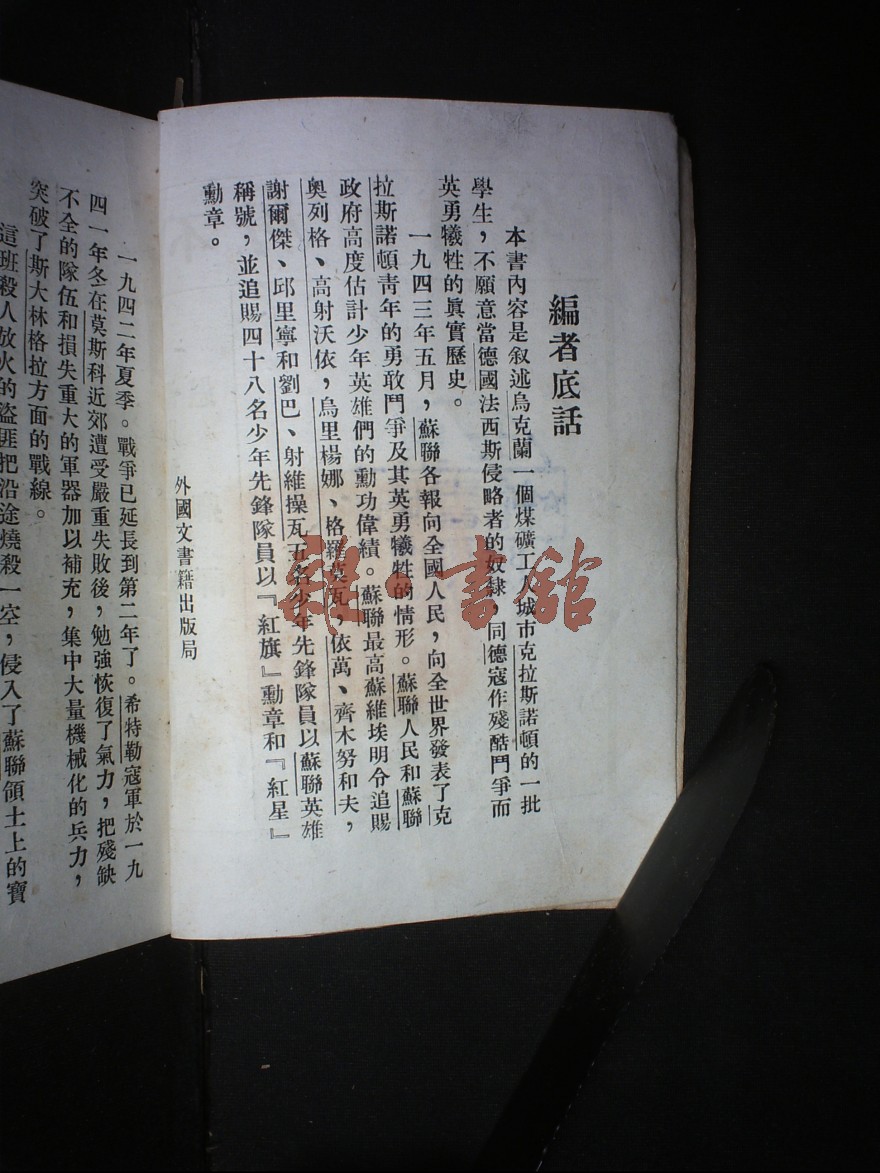 編者底話
本書內容是叙述烏克蘭一個煤礦工人城市克拉斯諾頓的一批
學生，不願意當德國法西斯侵略者的奴隸，同德寇作殘酷鬥爭而
英勇犧牲的眞實歷史。
一九四三年五月，蘇聯各報向全國人民，向全世界發表了克
拉斯諾頓靑年的勇敢鬥爭及其英勇犧牲的情形。蘇聯人民和蘇聯
政府高度估計少年英雄們的勳功偉績。蘇聯最高蘇維埃明令追賜
奥列格、高射沃依，烏里楊娜、格羅莫瓦，依萬、齊木努和夫，
謝爾傑、邱里寧和劉巴、射維操瓦五名少年先鋒隊員以蘇聯英雄
稱號，並追賜四十八名少年先鋒隊員以『紅旗』勳章和『紅星』
勳章。
外國文書籍出版局
一九四二年夏季。戰爭已延長到第二年了。希特勒寇軍於一九
四一年冬在莫斯科近郊遭受嚴重失敗後，勉強恢復了氣力，把殘缺
不全的隊伍和損失重大的軍器加以補充，集中大量機械化的兵力，
突破了斯大林格拉方面的戰線。
這班殺人放火的盜匪把沿途燒殺一空，侵入了蘇聯領土上的寶
書舘